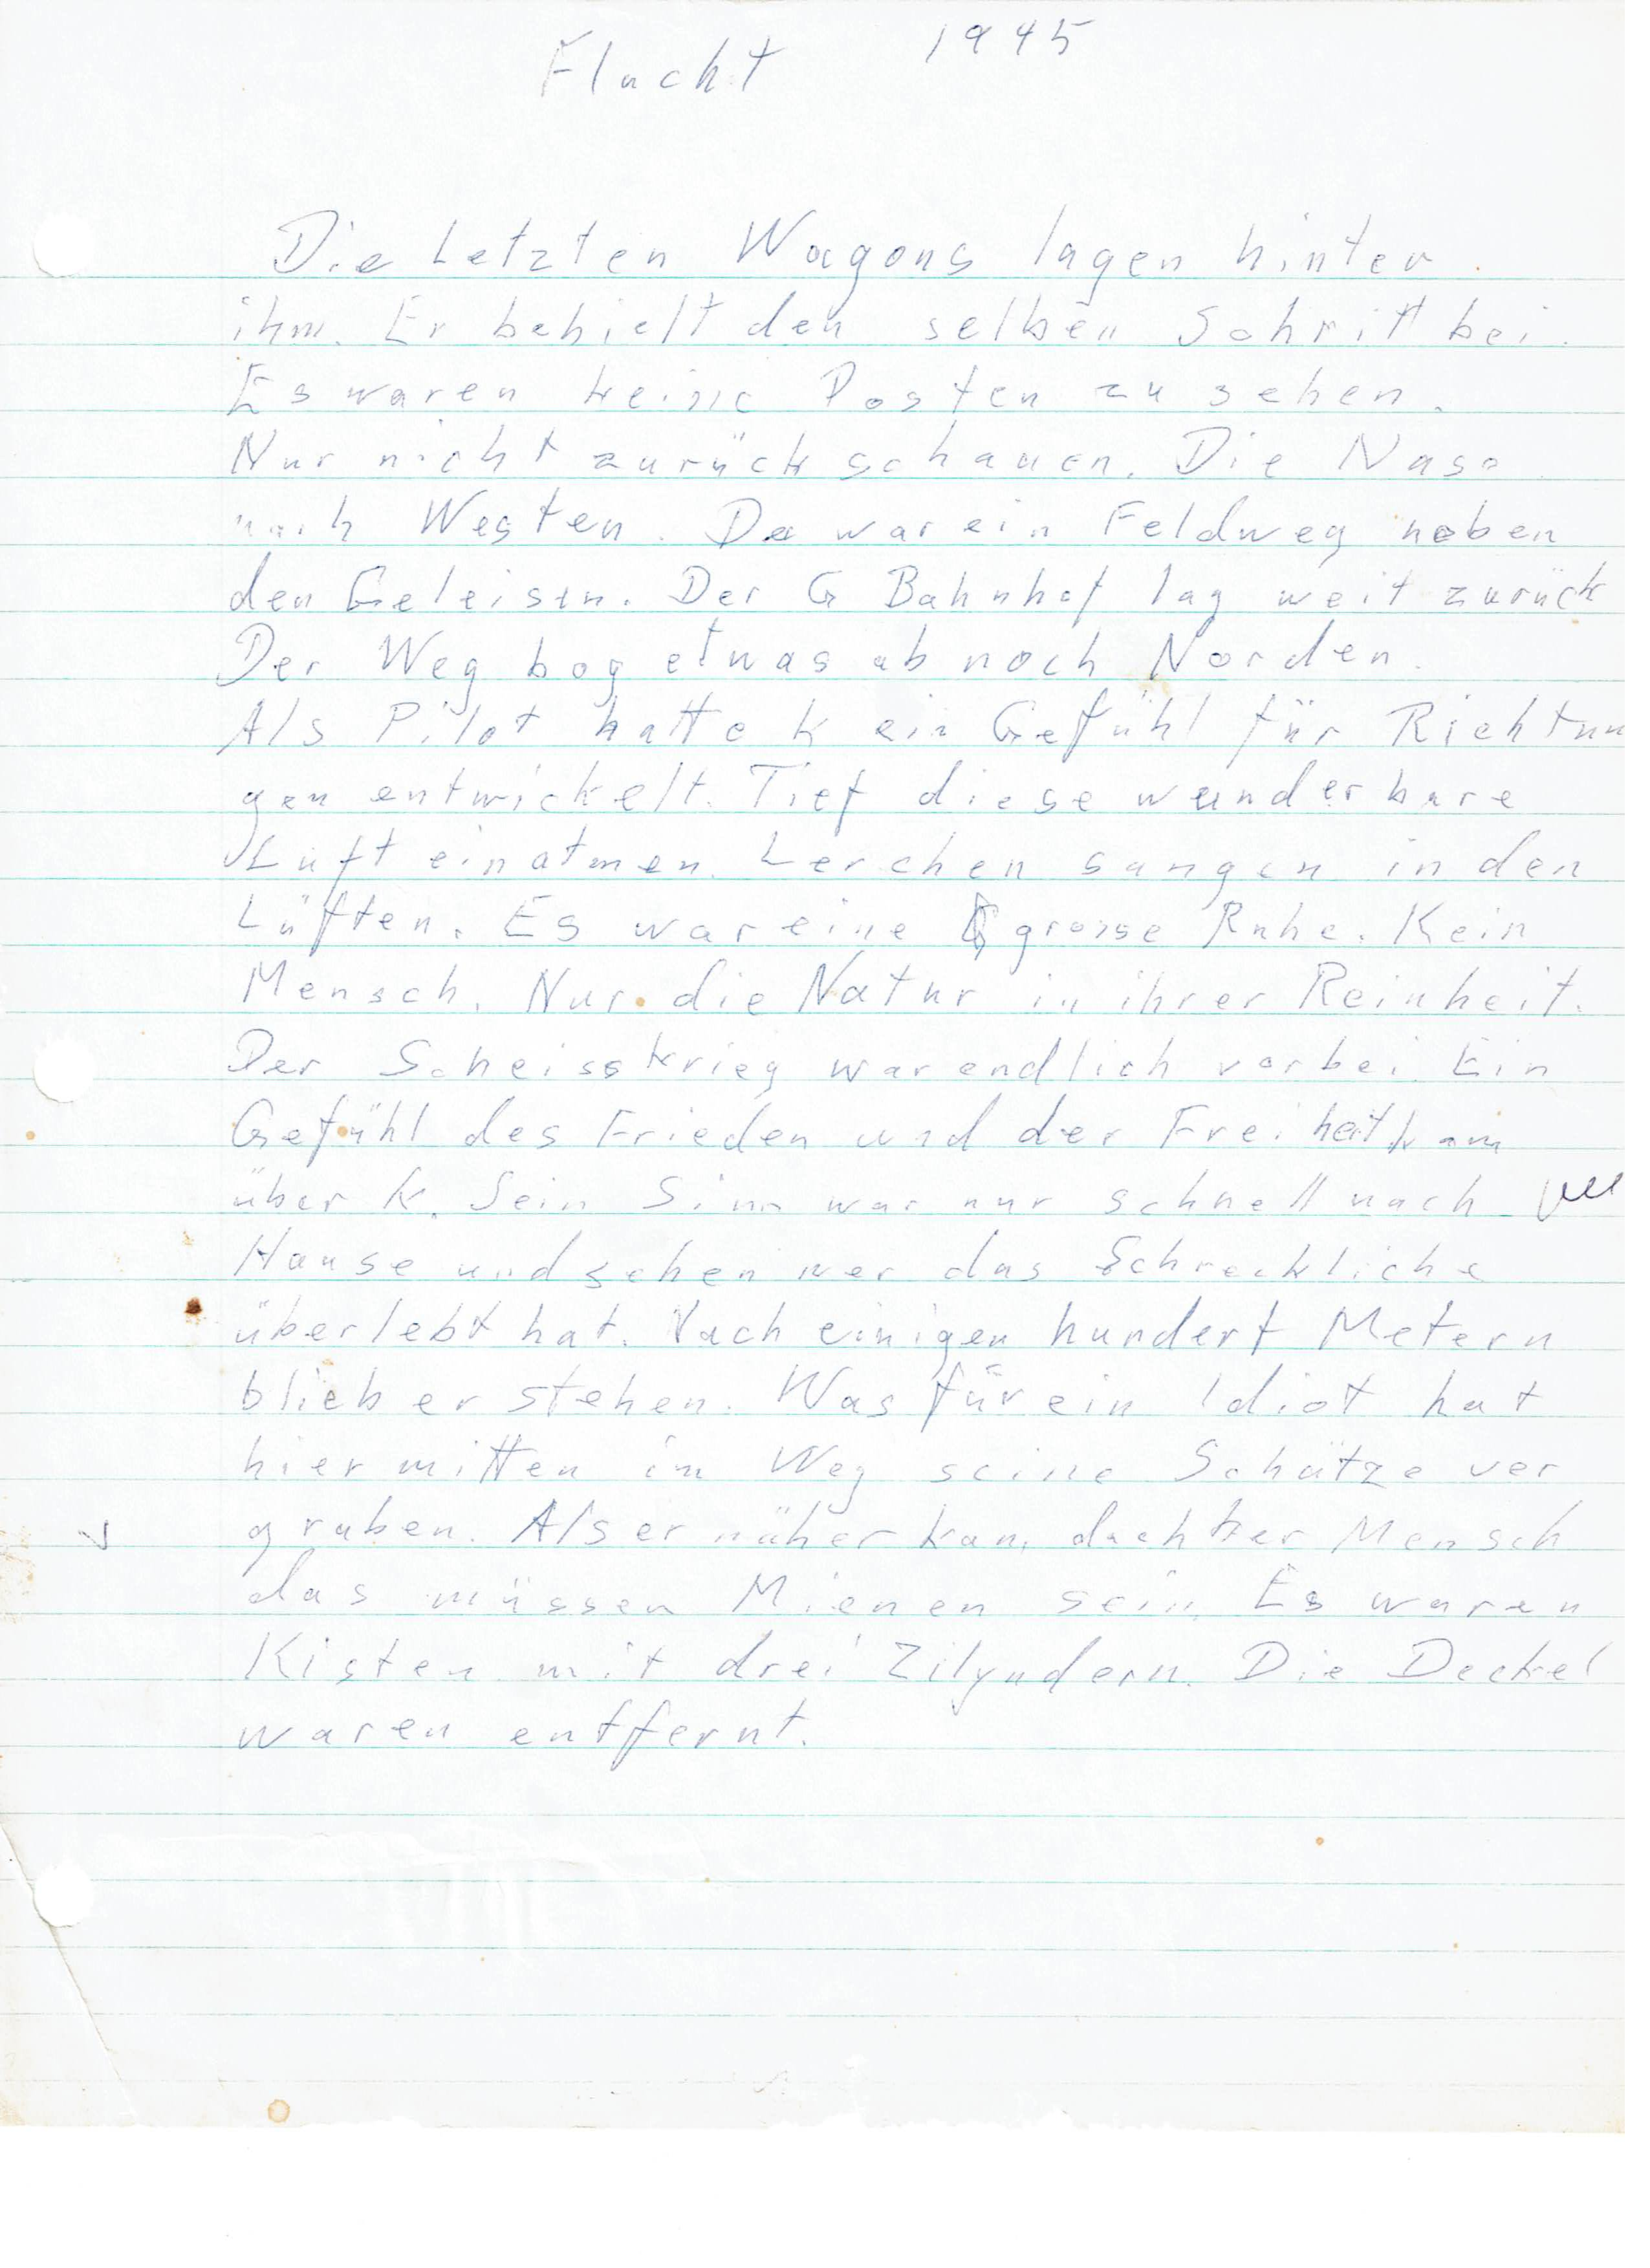 Flucht 1945
Die Letzten Wagons lagen hinter
ihm. Er behielt den selben Schritt bei.
Es waren keine Posten zu sehen.
Nur nicht zurück schauen. Die Nase
nach Westen. Da war ein Feldweg neben
den Geleisen. Der G Bahnhof lag weit zurück
Der Weg bog etwas ab noch Norden.
Als Pilot hatte K ein Gefühl für Richtun
gen entwickelt. Tief diese wunderbare
Luft einatmen. Lerchen sangen in den
Lüften. Es war eine grosse Ruhe. Kein
Mensch. Nur die Natur in ihrer Reinheit.
Der Scheisskrieg war endlich vorbei Ein
Gefühl des Frieden und der Freiheit kam
über K. Sein Sinn war nur schnell nach
Hause und sehen wer das Schreckliche
überlebt hat. Nach einigen hundert Metern
blieb er stehen. Was für ein Idiot hat
hier mitten im Weg seine Schätze ver
graben. Als er näher kam, dacht er Mensch
das müssen Mienen sein. Es waren
Kisten mit drei Zilyndern. Die Deckel
waren entfernt.